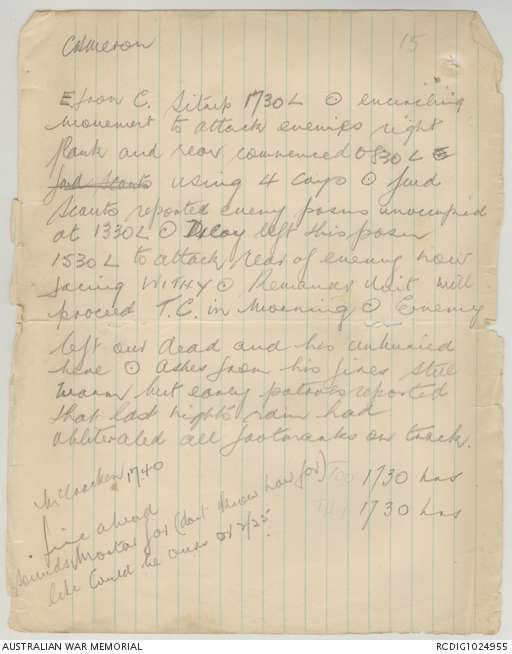 Cameron
15
E from C. Sitrep 1730L ⊙ encircling
movement to attack enemies right
flank and rear commenced 0830L E
fwd scouts using 4 coys ⊙ fwd
scouts reported enemy posns unoccupied
at 1330L ⊙ D coy left this posn
1530L to attack rear of enemy now
facing WITHY ⊙ Remainder Unit will
proceed T.C. in morning ⊙ Enemy
left our dead and his unburied
here ⊙ Ashes from his fires still
warm but early patrols reported
that last night's rain had
obliterated all footmarks on track.
McCracken 1740
TOO 1730 hrs
1730 hrs
fire ahead
sounds Mortar for (don't know how far)
like Could be ours or 2/25.
AUSTRALIAN WAR MEMORIAL
RCDIG1024955